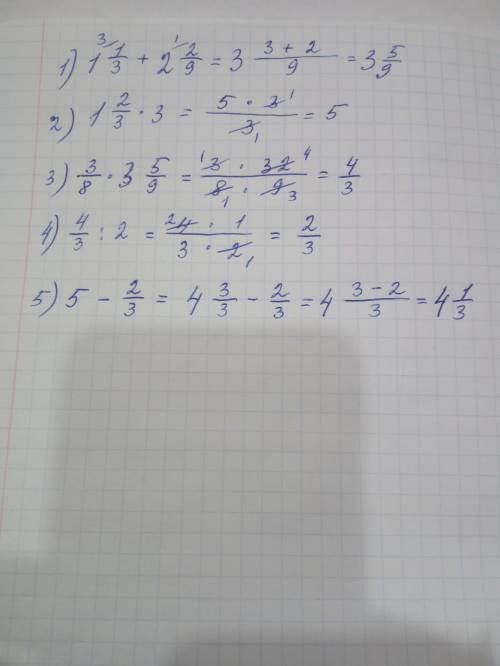 1) 1 ³⁄ 1/3 + 2 ¹⁄ 2/9 = 3 (3 + 2)/9 = 3 5/9
2) 1 2/3 · 3 = (5 · 3 ¹)/(3 ₁) = 5
3) 3/8 · 3 5/9 = (¹ 3 · 32 ⁴)/(8 ₁ · 9 ₃) = 4/3
4) 4/3 : 2 = (² 4 · 1)/(3 · 2 ₁) = 2/3
5) 5 - 2/3 = 4 3/3 - 2/3 = 4 (3 - 2)/3 = 4 1/3